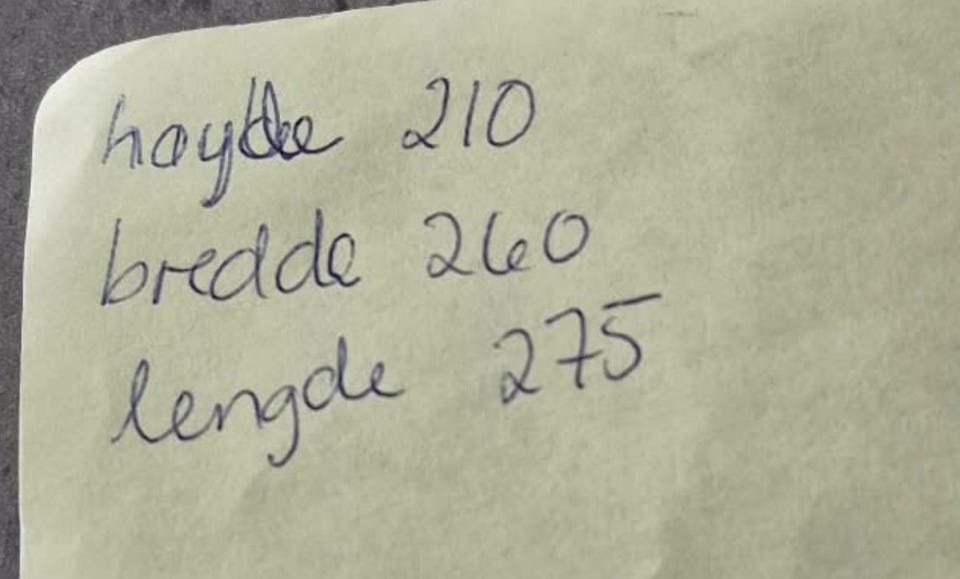 høyde 210
bredde 260
lengde 275